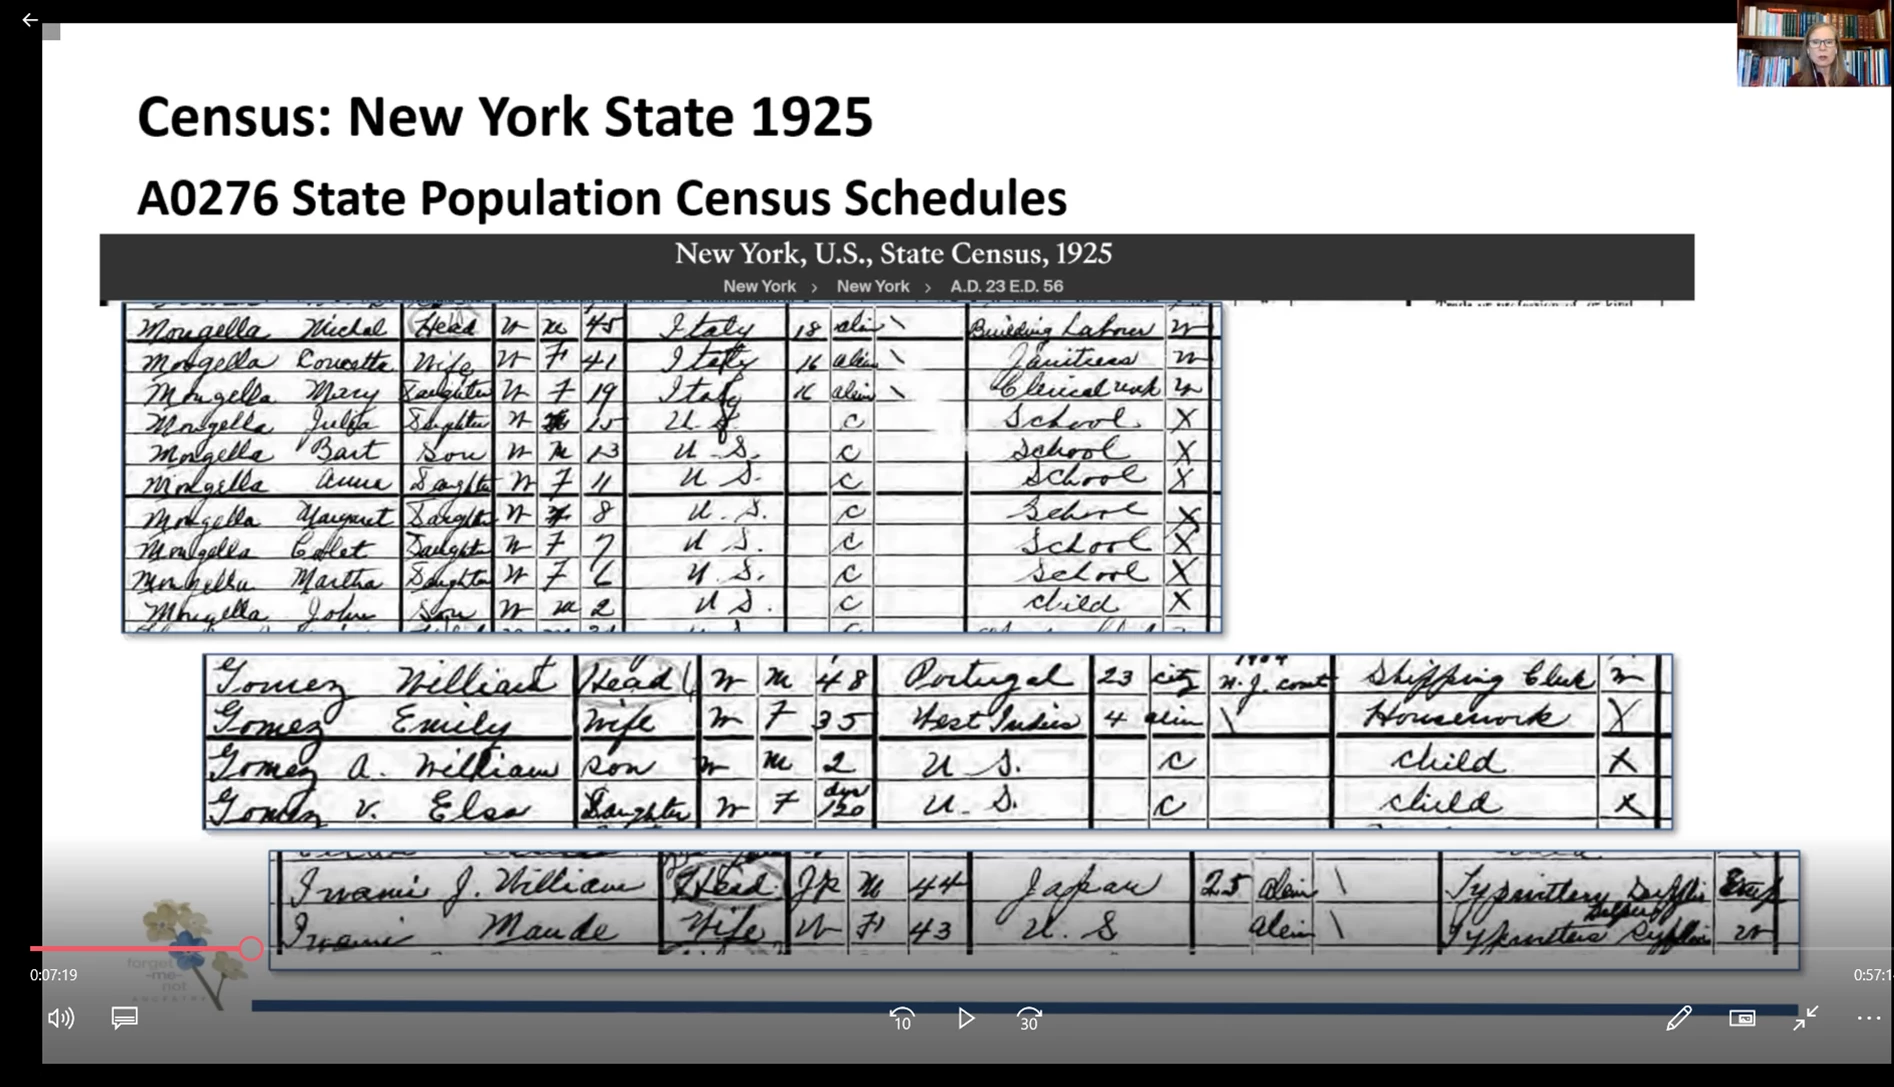 Census: New York State 1925
A0276 State Population Census Schedules
New York, U.S., State Census, 1925
New York › New York › A.D. 23 E.D. 56
Mongella Michel Head W M 45 Italy 18 alien \ Building Laborer W
Mongella Wife W F 41 Italy 16 alien \ Janitress W
Mongella Mary Daughter W F 19 Italy 16 alien \ Clerical work W
Mongella Julia Daughter W 15 U.S. C School X
Mongella Bart Son W M 13 U.S. C School X
Mongella Anna Daughter W F 11 U.S. C School X
Mongella Margaret Daughter W F 8 U.S. C School X
Mongella Daughter W F 7 U.S. C School X
Mongella Martha Daughter W F 6 U.S. C School X
Mongella John Son W M 2 U.S. C child X
Gomez William Head W M 48 Portugal 23 N.J. court Shipping Clerk W
Gomez Emily Wife W F 35 West Indies 4 alien \ Housework X
Gomez A. William son W M 2 U.S. C child X
Gomez V. Elsa Daughter W F 120 U.S. C child X
Iwami J. William Head Jp M 44 Japan 25 alien \
Iwami Maude Wife W F 43 U.S alien \ W
forget
-me-
not
ANCESTRY
0:07:19
0:57:1
10
30